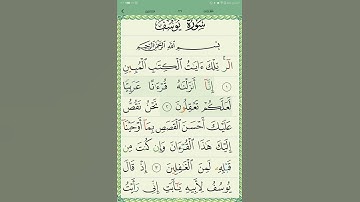 سورة يوسف
بسم الله الرحمن الرحيم
الٓر تِلْكَ ءَايَٰتُ ٱلْكِتَٰبِ ٱلْمُبِينِ
١ إِنَّآ أَنزَلْنَٰهُ قُرْءَٰنًا عَرَبِيًّا
لَّعَلَّكُمْ تَعْقِلُونَ ٢ نَحْنُ نَقُصُّ
عَلَيْكَ أَحْسَنَ ٱلْقَصَصِ بِمَآ أَوْحَيْنَآ
إِلَيْكَ هَٰذَا ٱلْقُرْءَانَ وَإِن كُنتَ مِن
قَبْلِهِۦ لَمِنَ ٱلْغَٰفِلِينَ ٣ إِذْ قَالَ
يُوسُفُ لِأَبِيهِ يَٰٓأَبَتِ إِنِّى رَأَيْتُ